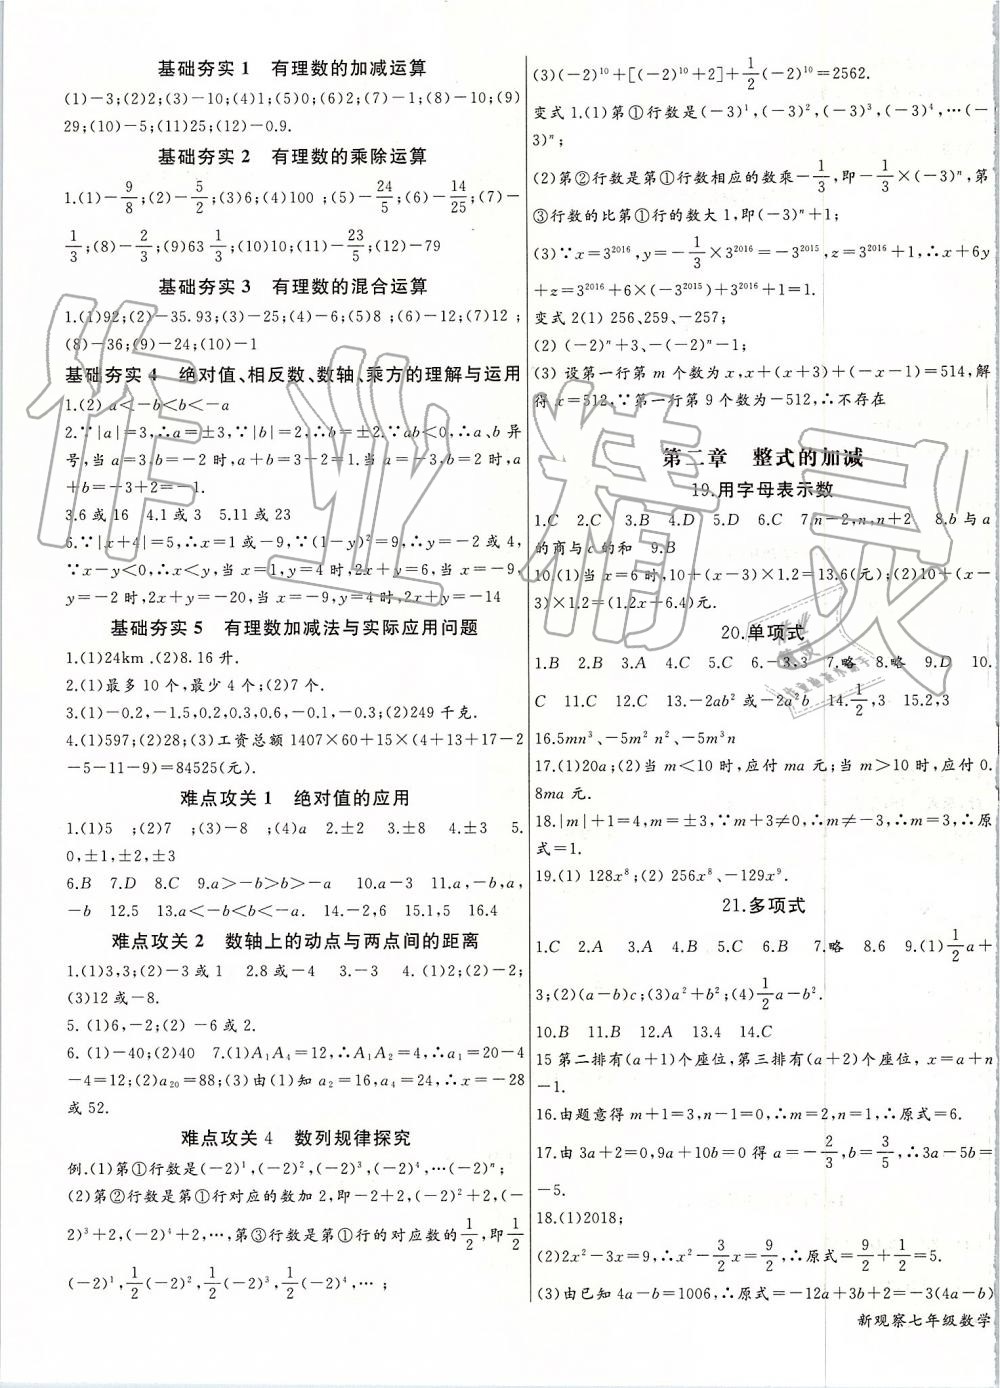 基础夯实1 有理数的加减运算
(1)-3;(2)2;(3)-10;(4)1;(5)0;(6)2;(7)-1;(8)-10;(9)
29;(10)-5;(11)25;(12)-0.9.
基础夯实2 有理数的乘除运算
1.(1)-9/8;(2)-5/2;(3)6;(4)100 ;(5)-24/5;(6)-14/25;(7)-
1/3;(8)-2/3;(9)63 1/3;(10)10;(11)-23/5;(12)-79
基础夯实3 有理数的混合运算
1.(1)92;(2)-35.93;(3)-25;(4)-6;(5)8 ;(6)-12;(7)12 ;
(8)-36;(9)-24;(10)-1
基础夯实4 绝对值、相反数、数轴、乘方的理解与运用
1.(2) a<-b<b<-a
2.∵|a|=3,∴a=±3,∵|b|=2,∴b=±2.∵ab<0,∴a、b异
号,当a=3,b=-2时,a+b=3-2=1.当a=-3,b=2时,a
+b=-3+2=-1.
3.6或16 4.1或3 5.11或23
6.∵|x+4|=5,∴x=1或-9,∵(1-y)²=9,∴y=-2或4,
∵x-y<0,∴x<y,当x=1,y=4时,2x+y=6,当x=-9,
y=-2时,2x+y=-20,当x=-9,y=4时,2x+y=-14
基础夯实5 有理数加减法与实际应用问题
1.(1)24km.(2)8.16升.
2.(1)最多10个,最少4个;(2)7个.
3.(1)-0.2,-1.5,0.2,0.3,0.6,-0.1,-0.3;(2)249千克.
4.(1)597;(2)28;(3)工资总额1407×60+15×(4+13+17-2
-5-11-9)=84525(元).
难点攻关1 绝对值的应用
1.(1)5 ;(2)7 ;(3)-8 ;(4)a 2.±2 3.±8 4.±3 5.
0,±1,±2,±3
6.B 7.D 8.C 9.a>-b>b>-a 10.a-3 11.a,-b,a,
-b 12.5 13.a<-b<b<-a. 14.-2,6 15.1,5 16.4
难点攻关2 数轴上的动点与两点间的距离
1.(1)3,3;(2)-3或1 2.8或-4 3.-3 4.(1)2;(2)-2;
(3)12或-8.
5.(1)6,-2;(2)-6或2.
6.(1)-40;(2)40 7.(1)A₁A₄=12,∴A₁A₂=4,∴a₁=20-4
-4=12;(2)a₂₀=88;(3)由(1)知a₂=16,a₄=24,∴x=-28
或52.
难点攻关4 数列规律探究
例.(1)第①行数是(-2)¹,(-2)²,(-2)³,(-2)⁴,…(-2)ⁿ;
(2)第②行数是第①行对应的数加2,即-2+2,(-2)²+2,(-
2)³+2,(-2)⁴+2,…,第③行数是第①行的对应数的1/2,即1/2
(-2)¹,1/2(-2)²,1/2(-2)³,1/2(-2)⁴,… ;
(3)(-2)¹⁰+[(-2)¹⁰+2]+1/2(-2)¹⁰=2562.
变式1.(1)第①行数是(-3)¹,(-3)²,(-3)³,(-3)⁴,…(-
3)ⁿ;
(2)第②行数是第①行数相应的数乘-1/3,即-1/3×(-3)ⁿ,第
③行数的比第①行的数大1,即(-3)ⁿ+1;
(3)∵x=3²⁰¹⁶,y=-1/3×3²⁰¹⁶=-3²⁰¹⁵,z=3²⁰¹⁶+1,∴x+6y
+z=3²⁰¹⁶+6×(-3²⁰¹⁵)+3²⁰¹⁶+1=1.
变式2(1) 256、259、-257;
(2) (-2)ⁿ+3、-(-2)ⁿ-1;
(3) 设第一行第m个数为x,x+(x+3)+(-x-1)=514,解
得x=512,∵第一行第9个数为-512,∴不存在
第二章 整式的加减
19.用字母表示数
1.C 2.C 3.B 4.D 5.D 6.C 7.n-2,n,n+2 8.b与a
的商与c的和 9.B
10.(1)当x=6时,10+(x-3)×1.2=13.6(元);(2)10+(x-
3)×1.2=(1.2x+6.4)元.
20.单项式
1.B 2.B 3.C 4.B 5.C 6.-3,3 7.略 8.略 9.D 10.
C 11.C 12.C 13.-2ab²或-2a²b 14.1/2,3 15.2,3
16.5mn³、-5m²n²、-5m³n
17.(1)20a;(2)当m<10时,应付ma元;当m>10时,应付0.
8ma元.
18.|m|+1=4,m=±3,∵m+3≠0,∴m≠-3,∴m=3,∴原
式=1.
19.(1) 128x⁸;(2) 256x⁸、-129x⁹.
21.多项式
1.C 2.A 3.A 4.B 5.C 6.B 7.略 8.6 9.(1)1/2a+
3;(2)(a-b)c;(3)a²+b²;(4)1/2a-b².
10.B 11.B 12.A 13.4 14.C
15第二排有(a+1)个座位,第三排有(a+2)个座位,x=a+n
-1.
16.由题意得m+1=3,n-1=0,∴m=2,n=1,∴原式=6.
17.由3a+2=0,9a+10b=0得a=-2/3,b=3/5,∴3a-5b=
-5.
18.(1)2018;
(2)2x²-3x=9,∴x²-3/2x=9/2,∴原式=9/2+1/2=5.
(3)由已知4a-b=1006,∴原式=-12a+3b+2=-3(4a-b)
新观察七年级数学
作业精灵